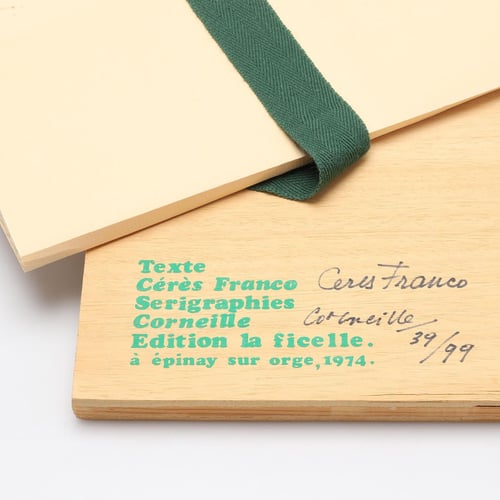 Texte
Cérès Franco
Serigraphies
Corneille
Edition la ficelle.
à épinay sur orge, 1974.
Ceres Franco
Corneille
39/99